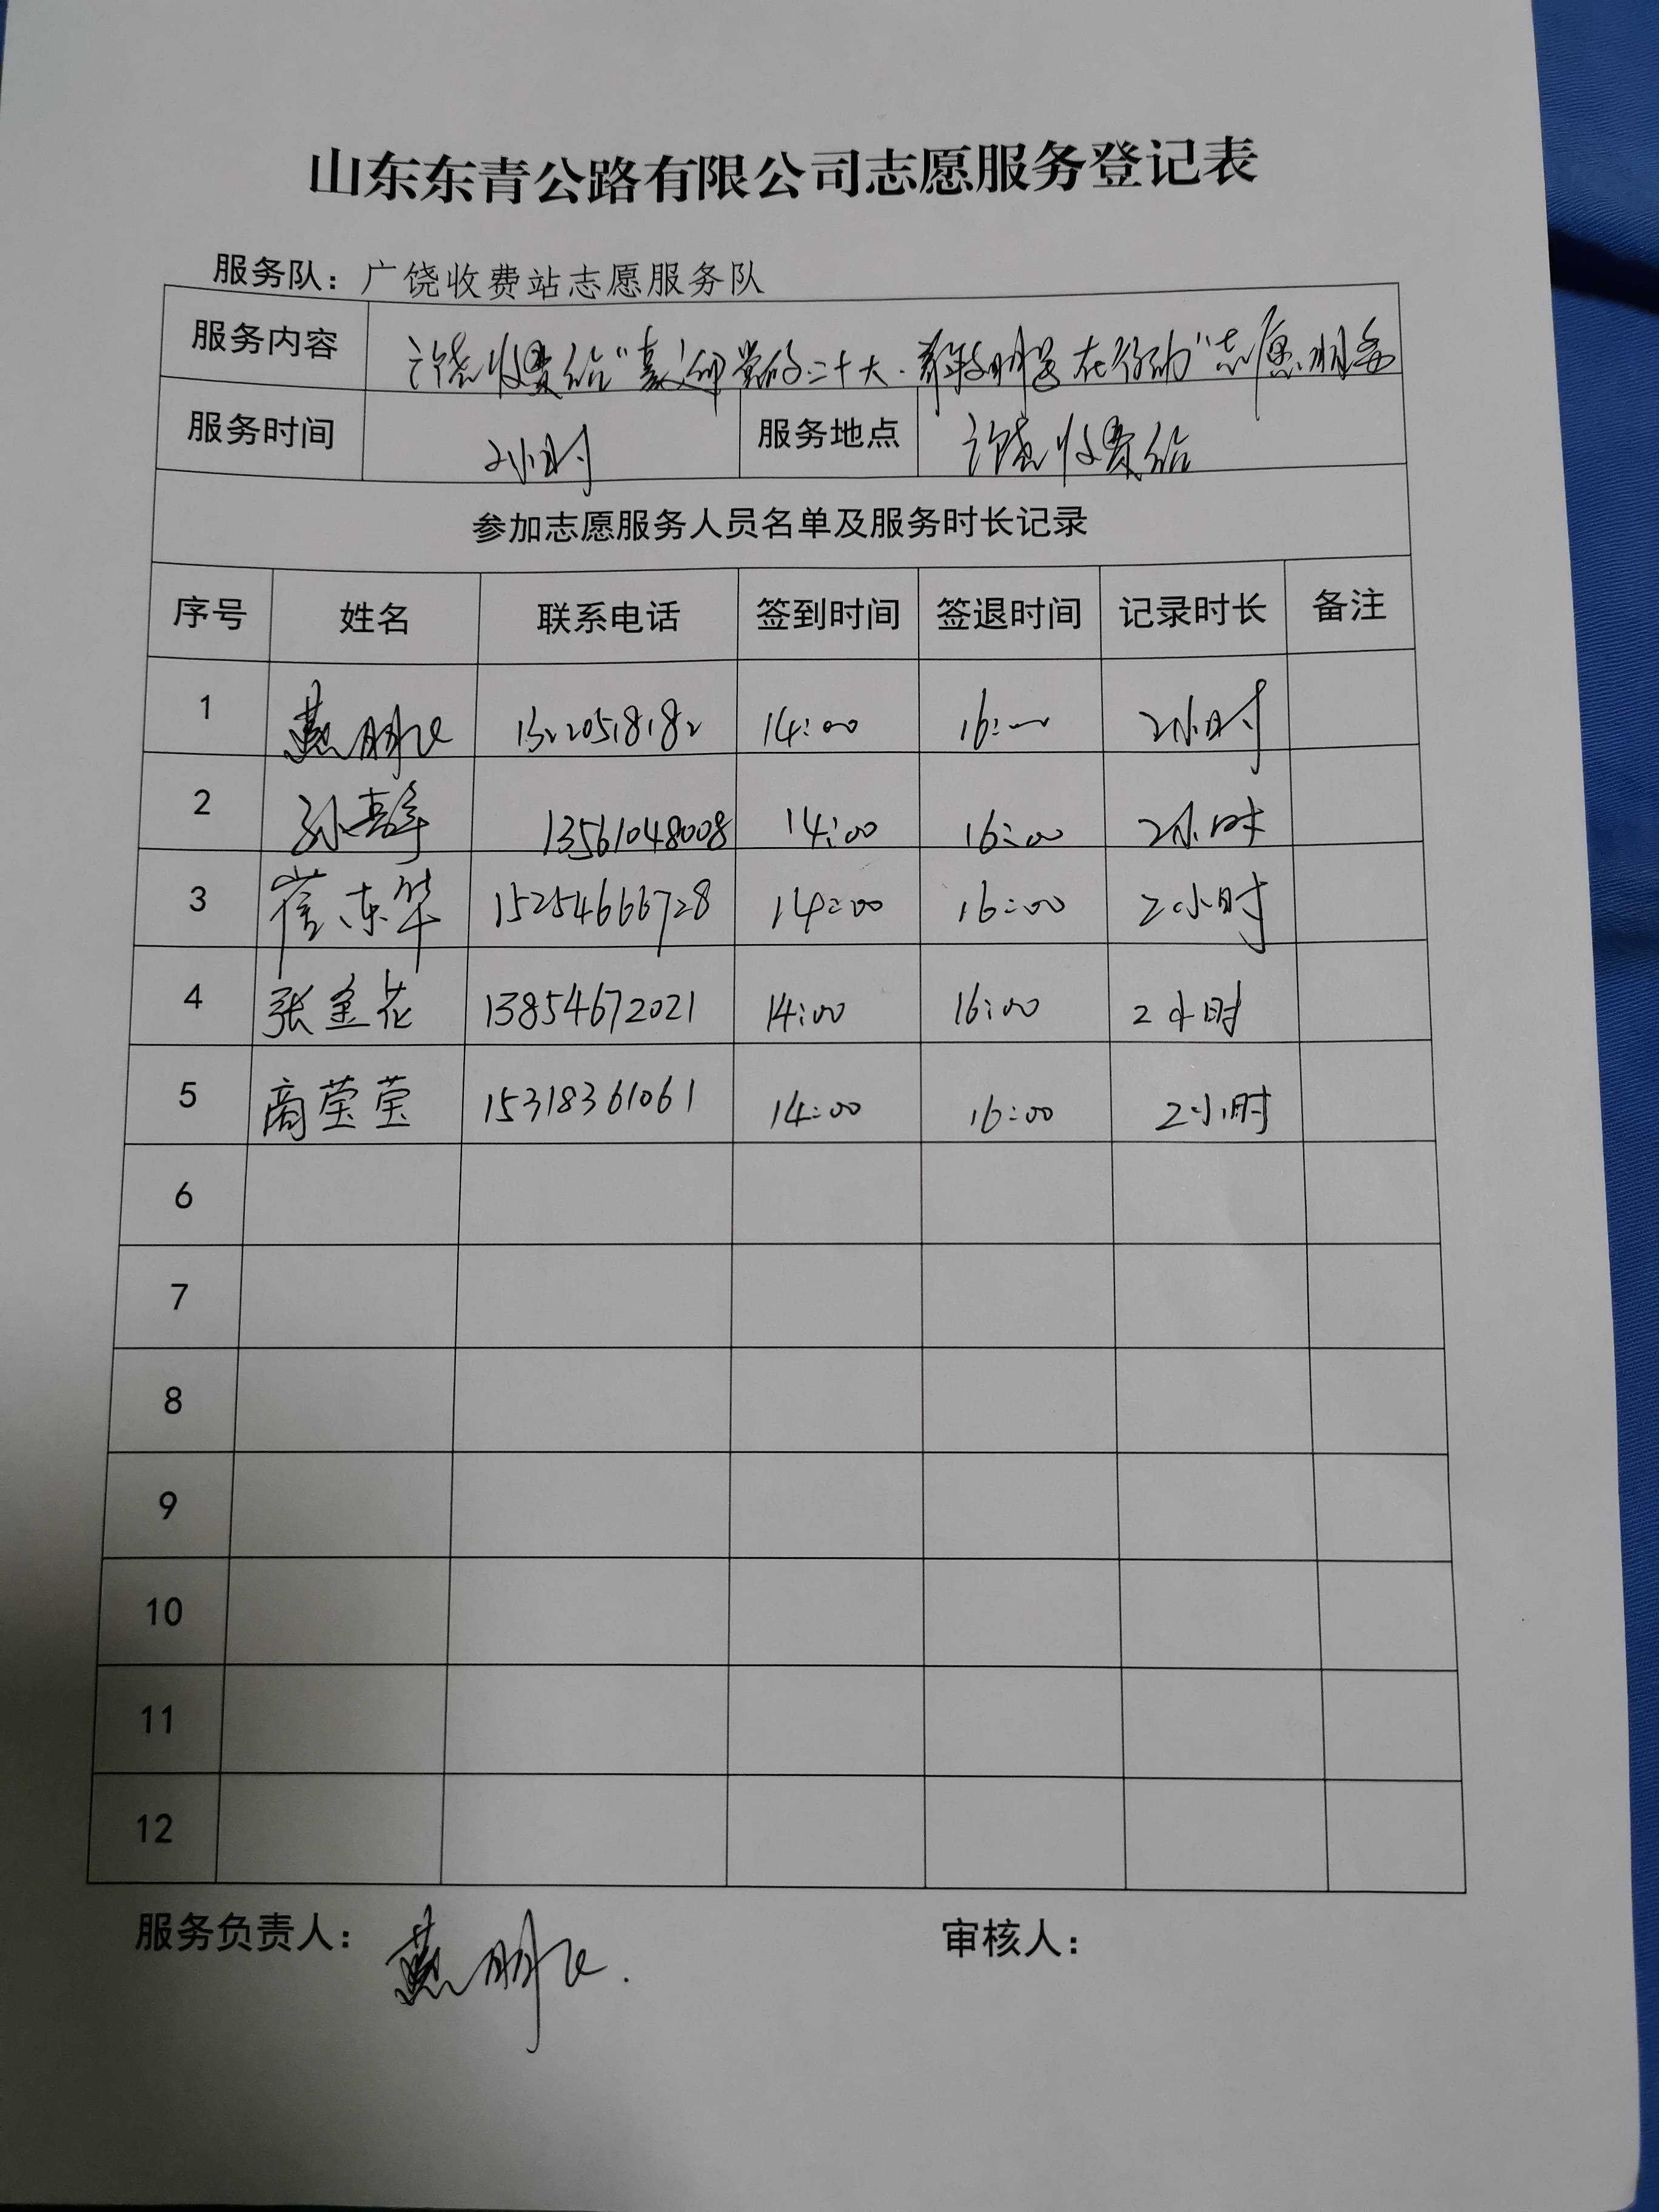 山东东青公路有限公司志愿服务登记表
服务队：广饶收费站志愿服务队
服务内容 广饶收费站“喜迎党的二十大 在行动”志愿服务
服务时间 2小时 服务地点 广饶收费站
参加志愿服务人员名单及服务时长记录
序号 姓名 联系电话 签到时间 签退时间 记录时长 备注
1 燕 14:00 16:00 2小时
2 孙 13561048008 14:00 16:00 2小时
3 崔东华 15254666728 14:00 16:00 2小时
4 张金花 13854672021 14:00 16:00 2小时
5 商莹莹 15318361061 14:00 16:00 2小时
6
7
8
9
10
11
12
服务负责人： 燕 审核人：